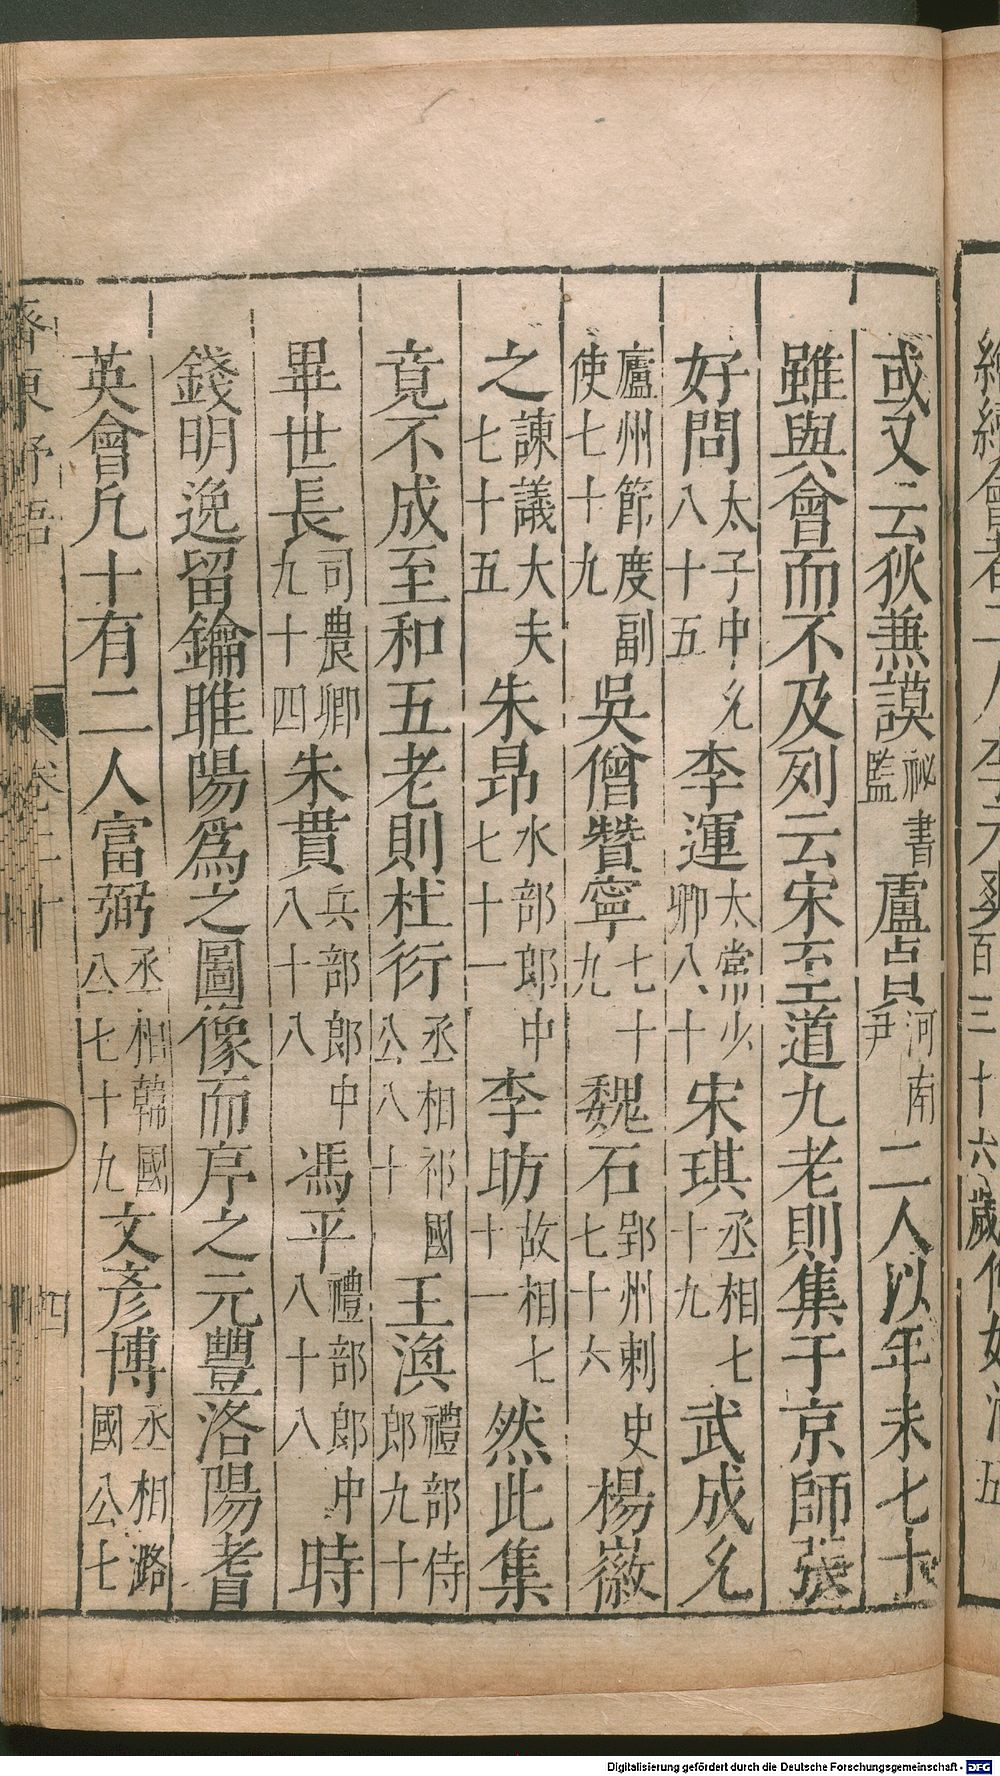 或又云狄兼謨祕書監盧貞河南尹二人以年未七十
雖與會而不及列云宋至道九老則集于京師張
好問太子中允八十五李運太常少卿八十宋琪丞相七十九武成允
廬州節度副使七十九吳僧贊寧七十九魏石郢州刺史七十六楊徽
之諫議大夫七十五朱昂水部郎中七十一李昉故相七十一然此集
竟不成至和五老則杜衍丞相祁國公八十王渙禮部侍郎九十
畢世長司農卿九十四朱貫兵部郎中八十八馮平禮部郎中八十八時
錢明逸留鑰睢陽爲之圖像而序之元豐洛陽耆
英會凡十有二人富弼丞相韓國公七十九文彥博丞相潞國公七
齊東野語 卷二十 四